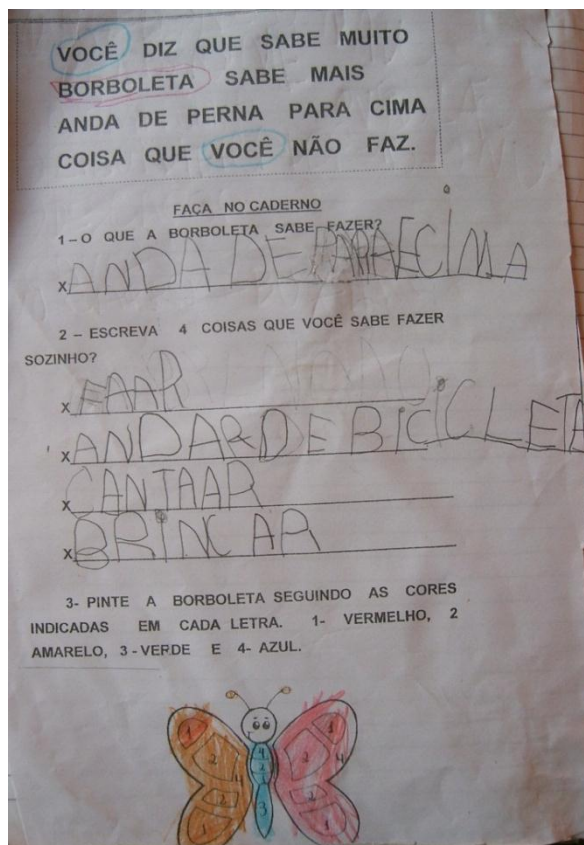 VOCÊ DIZ QUE SABE MUITO
BORBOLETA SABE MAIS
ANDA DE PERNA PARA CIMA
COISA QUE VOCÊ NÃO FAZ.
FAÇA NO CADERNO
1 – O QUE A BORBOLETA SABE FAZER?
X ANDA DE PARA CIMA
2 – ESCREVA 4 COISAS QUE VOCÊ SABE FAZER
SOZINHO?
X
X ANDAR DE BICICLETA
X CANTAAR
X BRINCAR
3- PINTE A BORBOLETA SEGUINDO AS CORES
INDICADAS EM CADA LETRA. 1- VERMELHO, 2
AMARELO, 3 - VERDE E 4- AZUL.
1 4 1
2 2 2
4 1 4
2 3 2
1 1